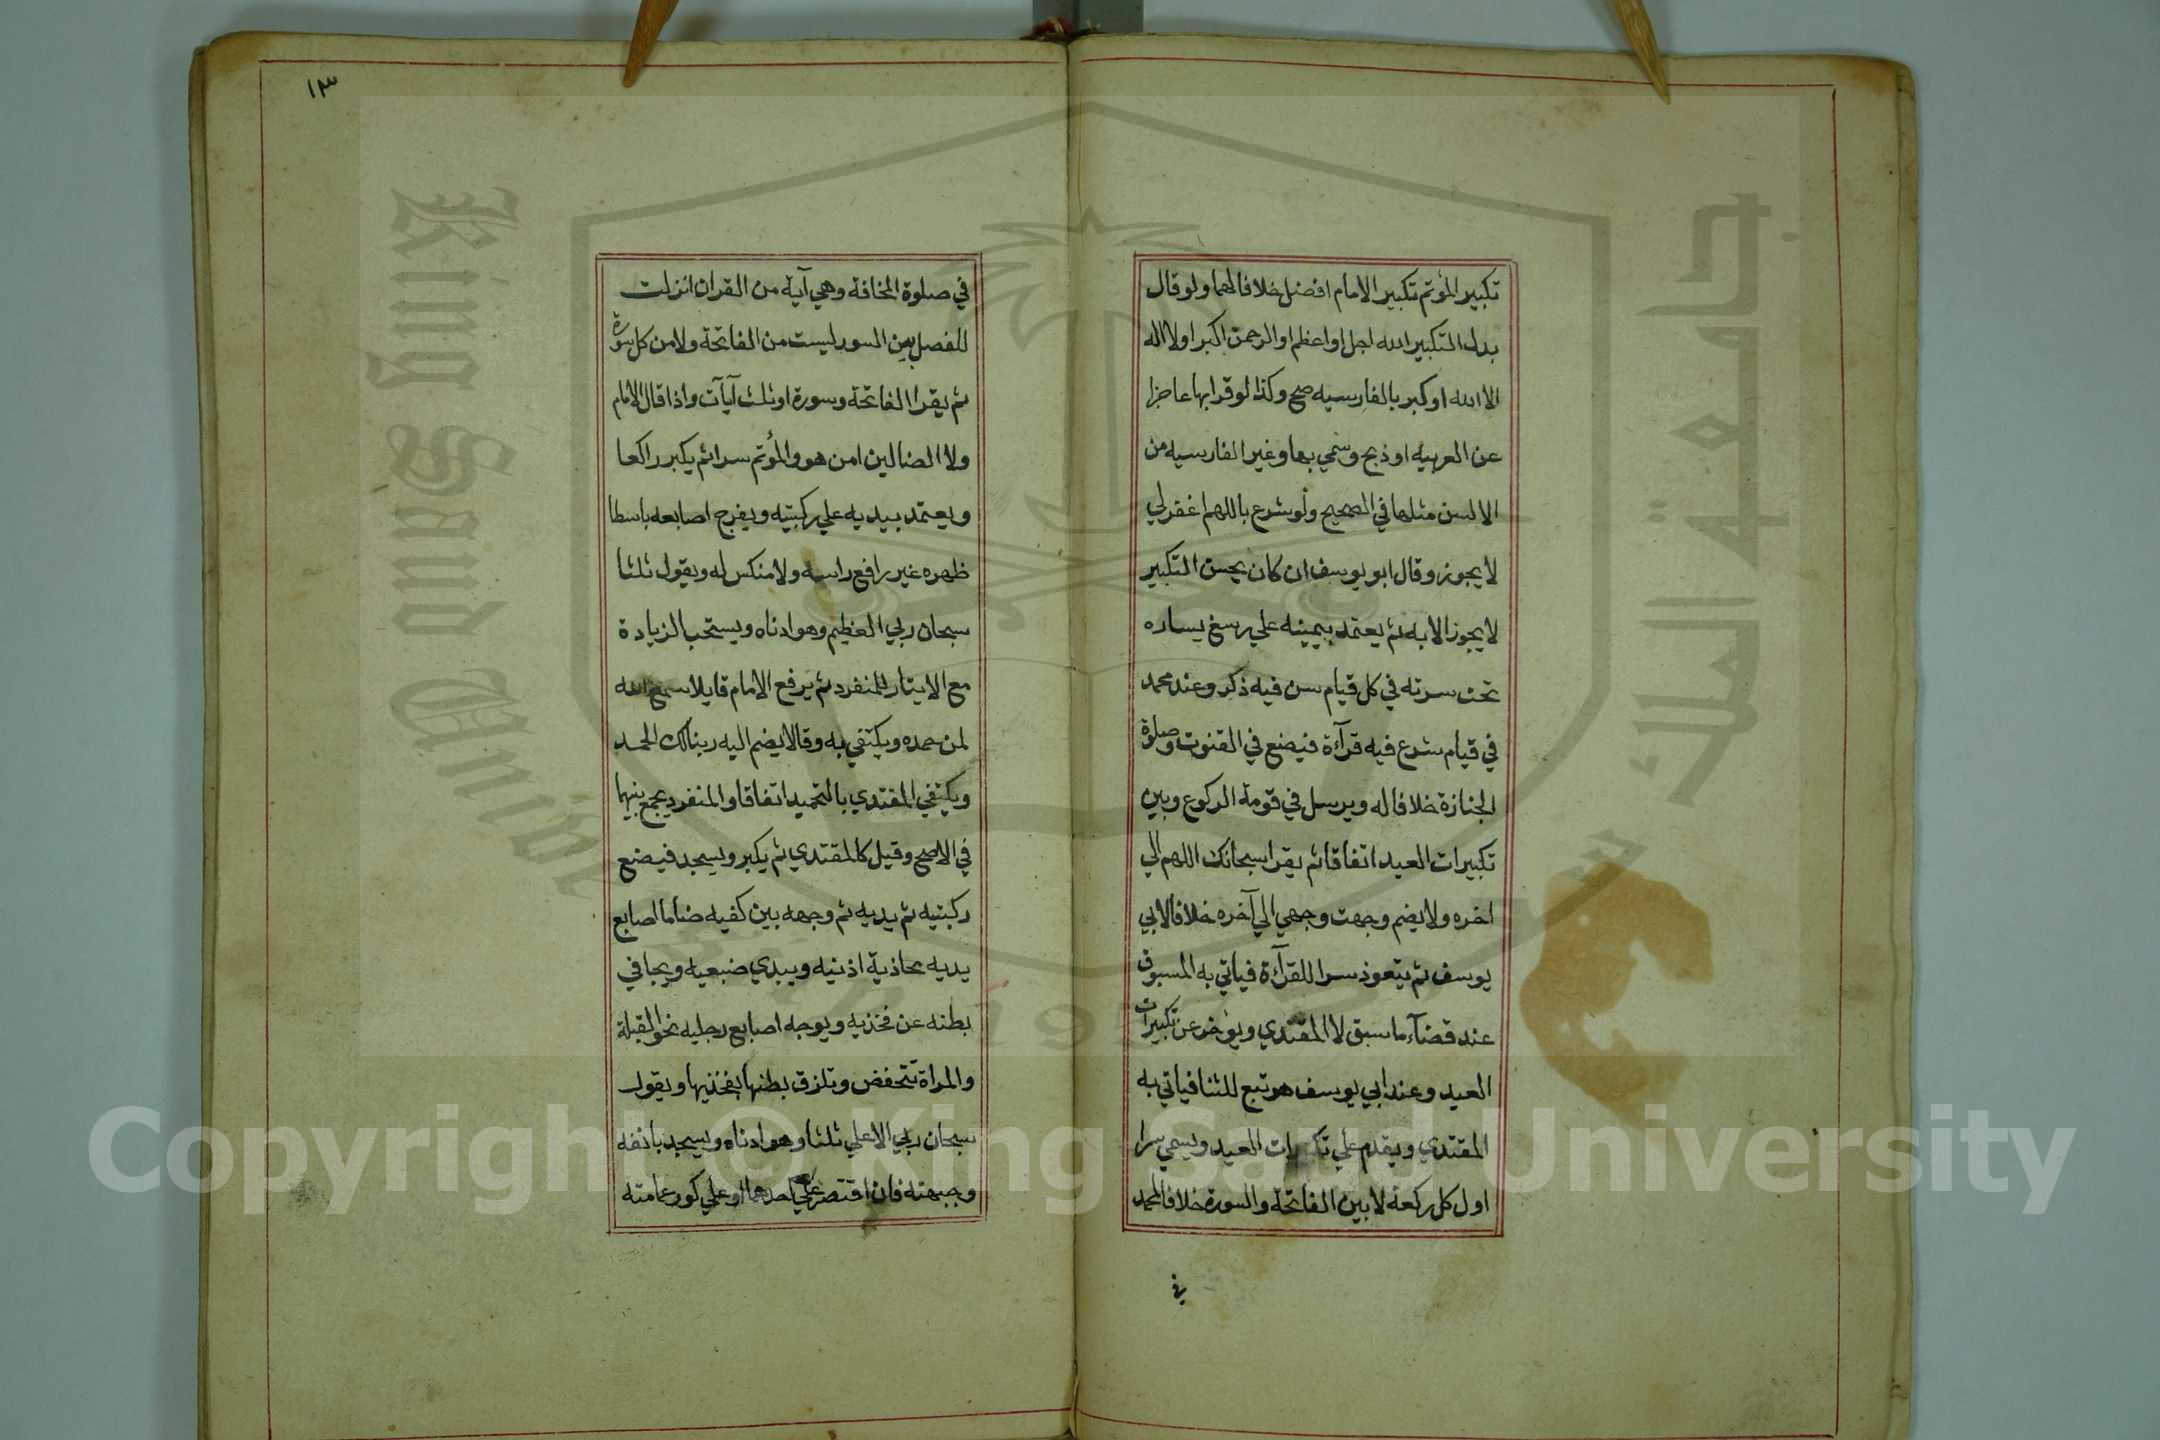 تكبير المؤتم تكبير الامام افضل خلافا لهما ولو قال
بدل التكبير الله اجل او اعظم او الرحمن اكبر او لا اله
الا الله او كبر بالفارسيه صح وكذا لو قرا بها عاجزا
عن العربيه او ذبح وسمي بها وغير الفارسيه من
الالسن مثلها في الصحيح ولو شرع باللهم اغفر لي
لا يجوز وقال ابو يوسف ان كان يحسن التكبير
لا يجوز الا به ثم يعتمد بيمينه علي رسغ يساره
تحت سرته في كل قيام سن فيه ذكر وعند محمد
في قيام شرع فيه قرآءة فيضع في القنوت وصلوة
الجنازة خلافا له ويرسل في قومة الركوع وبين
تكبيرات العيد اتفاقا ثم يقرا سبحانك اللهم الي
اخره ولا يضم وجهت وجهي الي آخره خلافا لابي
يوسف ثم يتعوذ سرا للقرآءة فياتي به المسبوق
عند قضآء ما سبق لا المقتدي ويؤخر عن تكبيرات
العيد وعند ابي يوسف هو تبع للثنا فياتي به
المقتدي ويقدم علي تكبيرات العيد ويسمي سرا
اول كل ركعة لا بين الفاتحة والسورة خلافا لمحمد
في
١٣
في صلوة المخافة وهي آية من القران انزلت
للفصل بين السور ليست من الفاتحة ولا من كل سورة
ثم يقرا الفاتحة وسورة او ثلث آيآت واذا قال الامام
ولا الضالين امن هو والمؤتم سرا ثم يكبر راكعا
ويعتمد بيديه علي ركبتيه ويفرج اصابعه باسطا
ظهره غير رافع راسه ولا منكس له ويقول ثلثا
سبحان ربي العظيم وهو ادناه ويستحب الزيادة
مع الايتار للمنفرد ثم يرفع الامام قايلا سمع الله
لمن حمده ويكتفي به وقالا يضم اليه ربنا لك الحمد
ويكتفي المقتدي بالتحميد اتفاقا والمنفرد يجمع بينهما
في الاصح وقيل كالمقتدي ثم يكبر ويسجد فيضع
ركبتيه ثم يديه ثم وجهه بين كفيه ضاما اصابع
يديه محاذية اذنيه ويبدي ضبعيه ويجافي
بطنه عن فخذيه ويوجه اصابع رجليه نحو القبلة
والمراة تنخفض وتلزق بطنها بفخذيها ويقول
سبحان ربي الاعلي ثلثا وهو ادناه ويسجد بانفه
وجبهته فان اقتصر علي احدهما او علي كور عمامته
Copyright © King Saud University